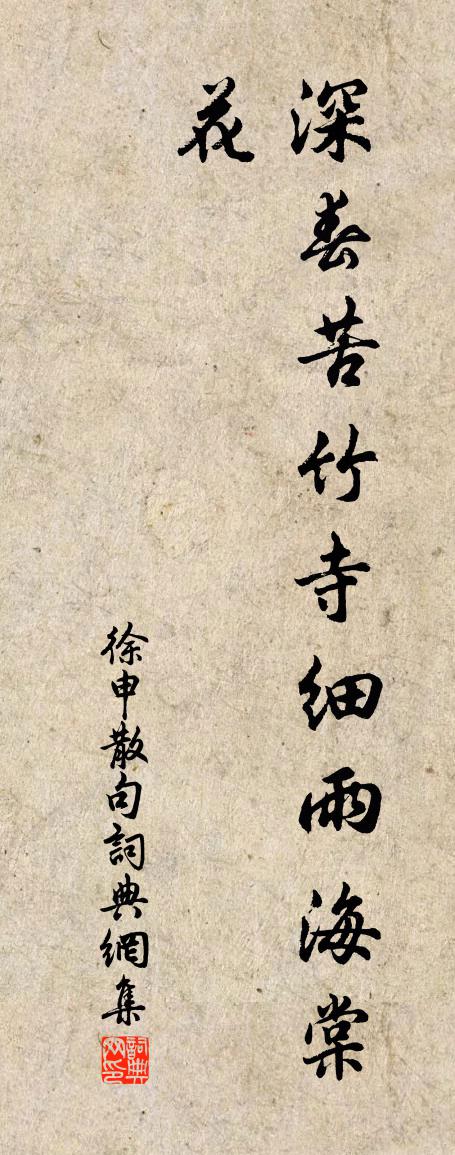 深春苦竹寺細雨海棠
花
徐申散句詞典網集
詞典
网印